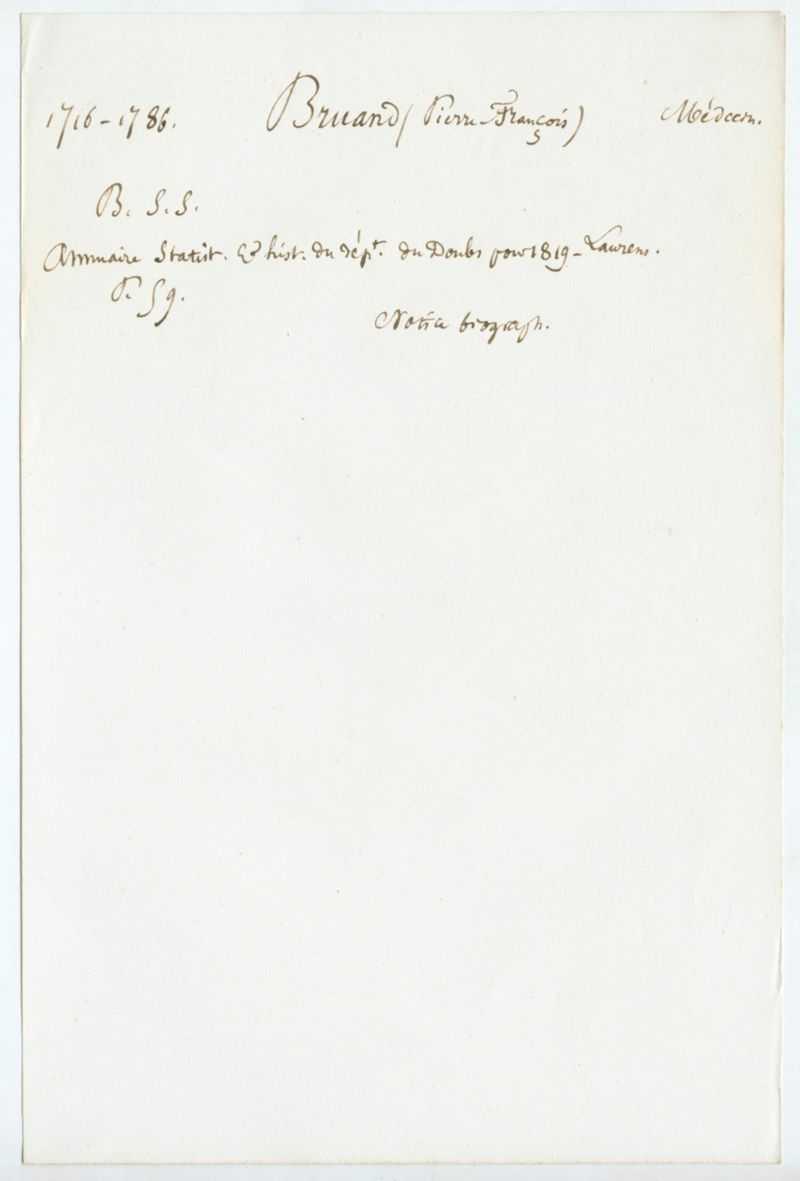 1716-1786. Bruand (Pierre-François) Médecin.
B. S. S.
Annuaire Statist. & hist. du dépt. du Doubs pour 1819 - Laurens.
P. 59.
Notice biograph.